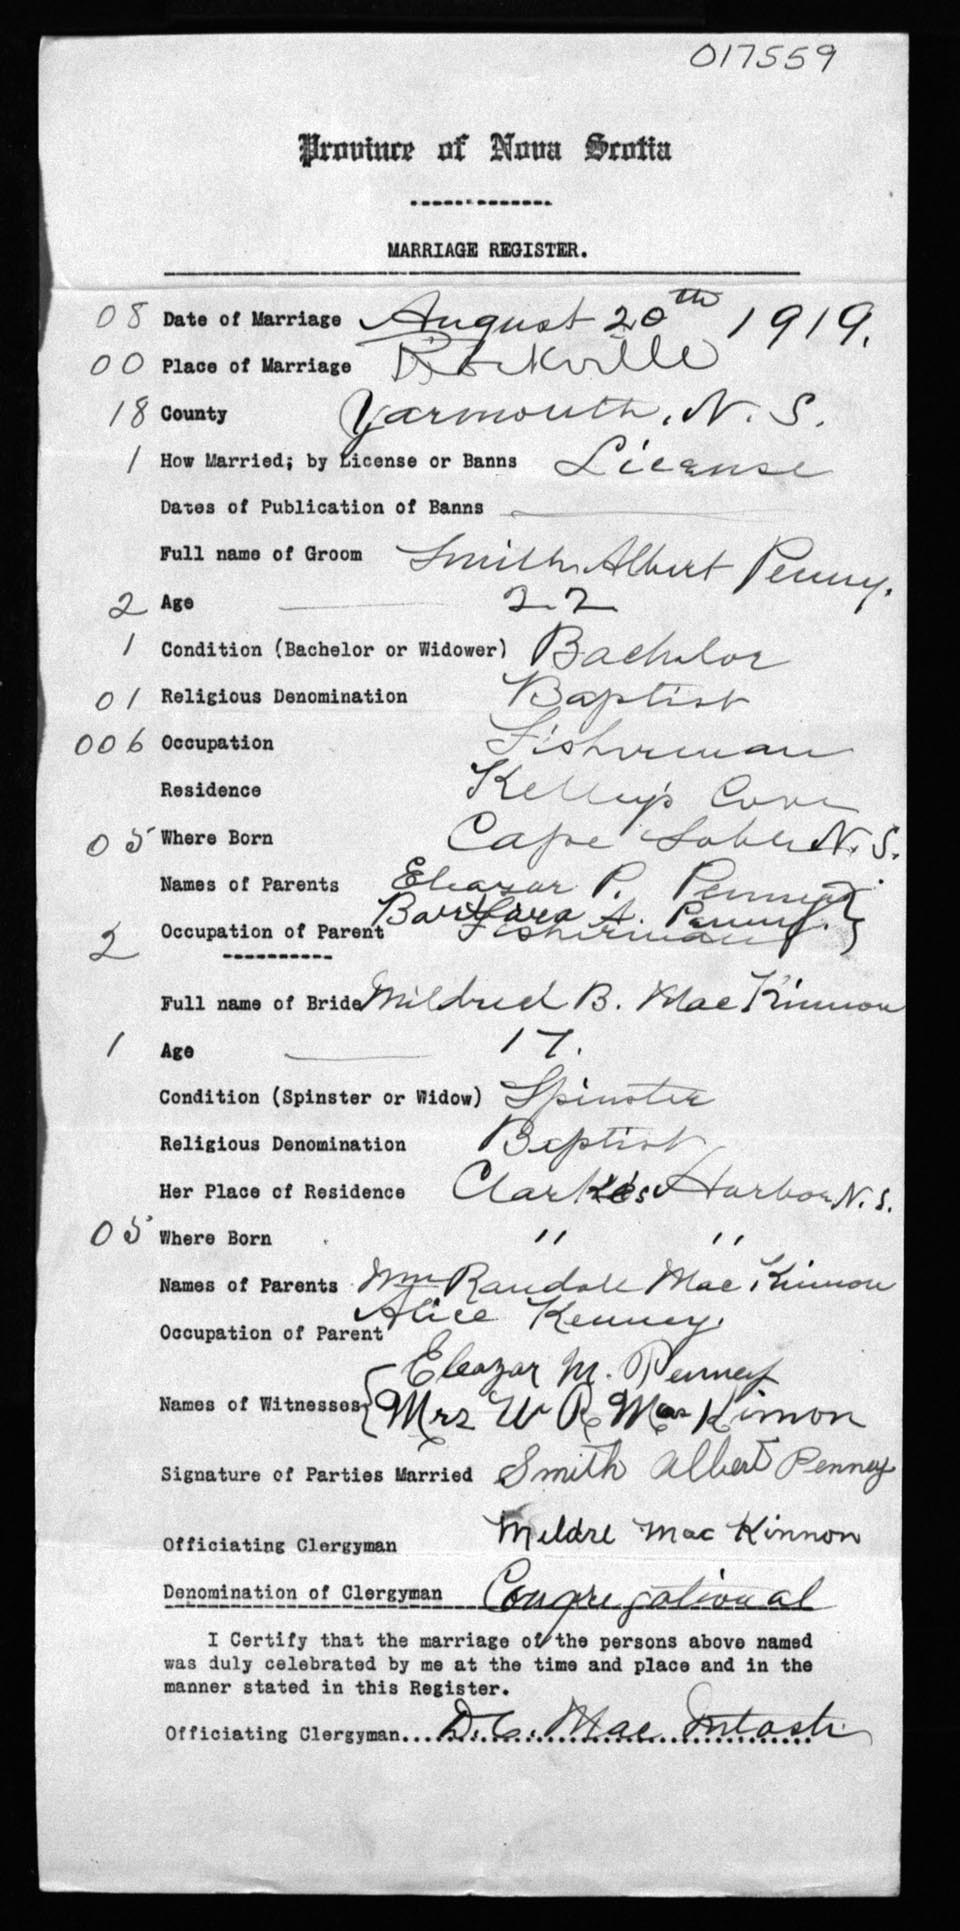 017559
Province of Nova Scotia
MARRIAGE REGISTER.
08 Date of Marriage August 20th 1919.
00 Place of Marriage Rockville
18 County Yarmouth, N. S.
1 How Married; by License or Banns License
Dates of Publication of Banns
Full name of Groom Smith Albert Penny.
2 Age 22
1 Condition (Bachelor or Widower) Bachelor
01 Religious Denomination Baptist
006 Occupation Fisherman
Residence Kelley's Cove
05 Where Born Cape Sable N. S.
Names of Parents Eleazar P. Penny
Barbara A. Penny.
2 Occupation of Parent Fisherman
Full name of Bride Mildred B. MacKinnon
1 Age 17.
Condition (Spinster or Widow) Spinster
Religious Denomination Baptist
Her Place of Residence Clark's Harbor N. S.
05 Where Born " "
Names of Parents Wm Randall MacKinnon
Alice Kenney.
Occupation of Parent
Eleazar M. Penney
Names of Witnesses Mrs W R MacKinnon
Signature of Parties Married Smith Albert Penney
Mildre MacKinnon
Officiating Clergyman
Denomination of Clergyman Congregational
I Certify that the marriage of the persons above named
was duly celebrated by me at the time and place and in the
manner stated in this Register.
Officiating Clergyman....D. C. MacIntosh